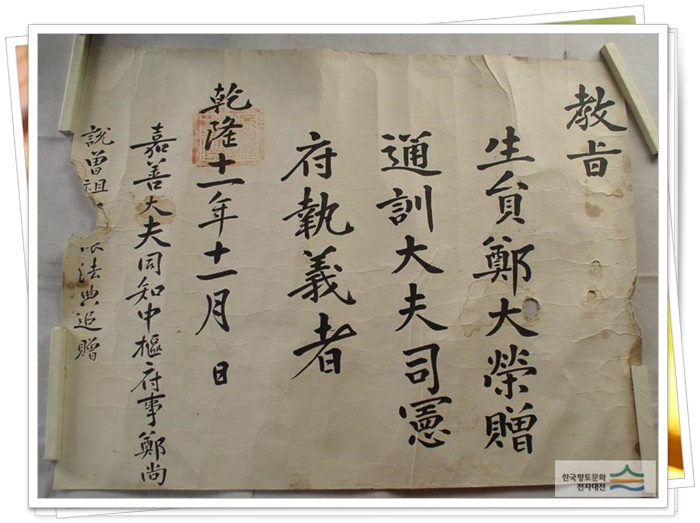 教旨
生員鄭大榮贈
通訓大夫司憲
府執義者
乾隆十一年十一月 日
嘉善大夫同知中樞府事鄭尚
說曾祖 依法典追贈
한국향토문화
전자대전